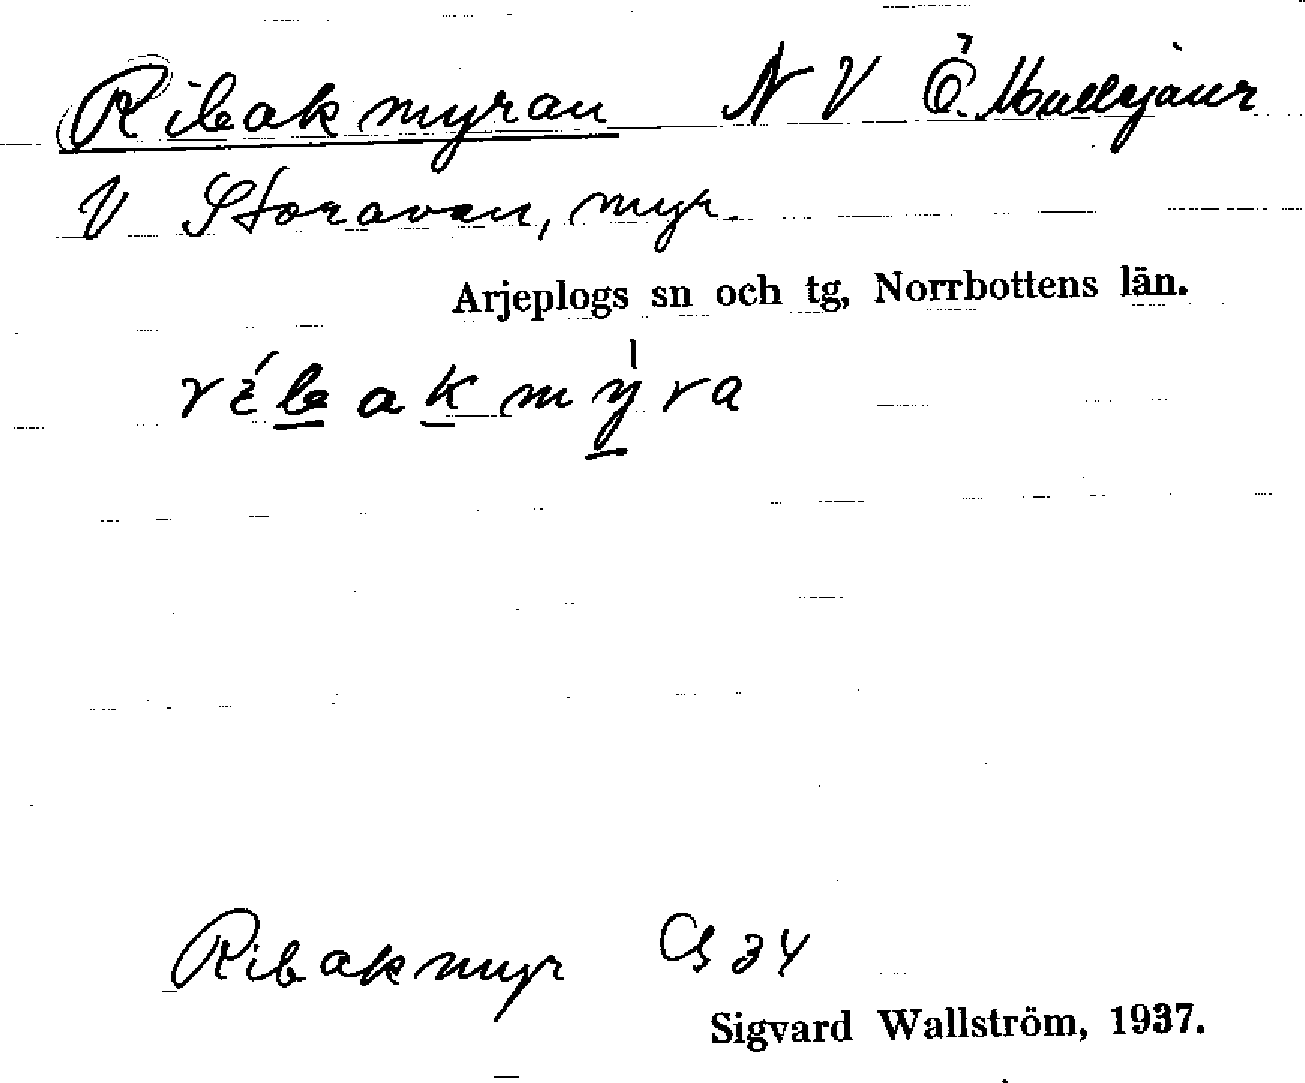 Ribakmyran NV Ö. Mullejaur
V Storavan, myr.
Arjeplogs sn och tg, Norrbottens län.
Ribakmyr
Sigvard Wallström, 1937.